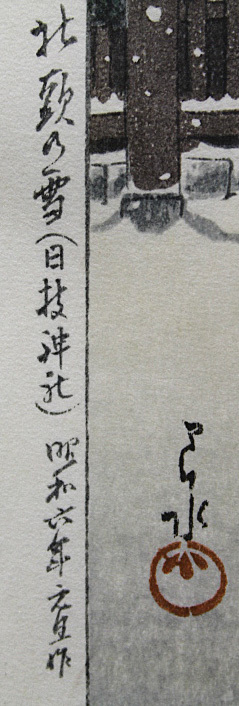 巴水
社頭乃雪(日枝神社) 昭和六年元旦作